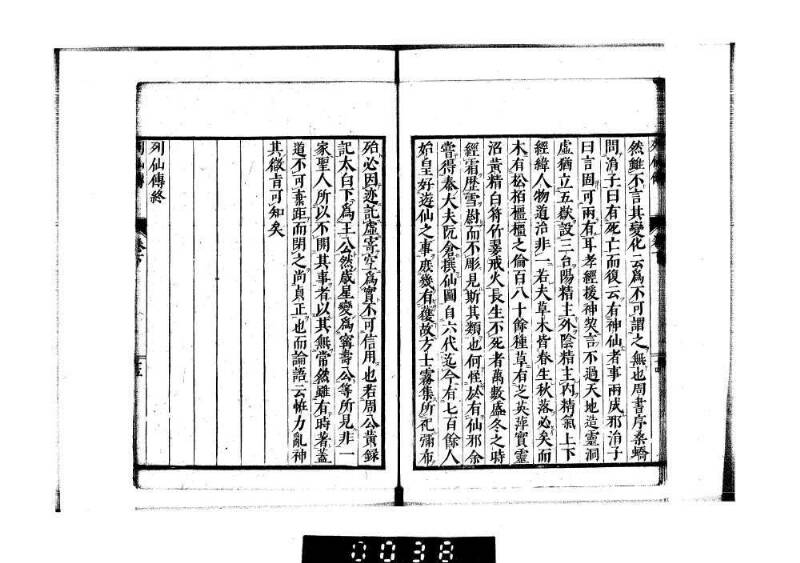 然雖不言其變化云為不可謂之無也周書序桑蟜
問涓子曰有死亡而復云有神仙者事兩成邪涓子
曰言固可兩有耳孝經援神契言不過天地造靈洞
虛猶立五嶽設三台陽精主外陰精主內精氣上下
經緯人物道治非一若夫草木皆春生秋落必矣而
木有松柏橿檀之倫百八十餘種草有芝英萍實靈
沼黃精白符竹翣戒火長生不死者萬數盛冬之時
經霜歷雪蔚而不彫見斯其類也何怪於有仙邪余
嘗得秦大夫阮倉撰仙圖自六代迄今有七百餘人
始皇好遊仙之事庶幾有獲故方士霧集所祀彌布
殆必因迹記虛寄空為實不可信用也若周公黃錄
記太白下為王公然歲星變為甯壽公等所見非一
家聖人所以不開其事者以其無常然雖有時著蓋
道不可棄距而閉之尚貞正也而論語云恠力亂神
其微旨可知矣
列仙傳終
0038